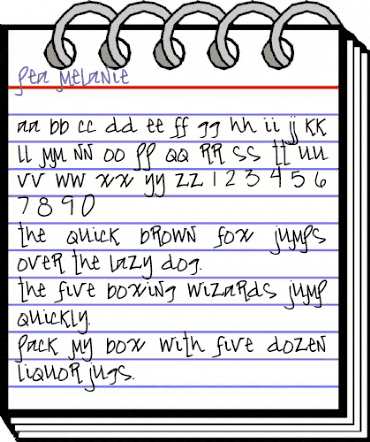 Pea Melanie
aa bb cc dd ee ff gg hh ii jj KK
ll MM NN oo pp QQ RR ss tt uu
vv ww xx yy zz 1 2 3 4 5 6
7 8 9 0
the quick BROWN fox jumps
oveR the lazy dog.
the five boxing wizaRds jump
quickly.
pack My box with five dozeN
liquoR jugs.